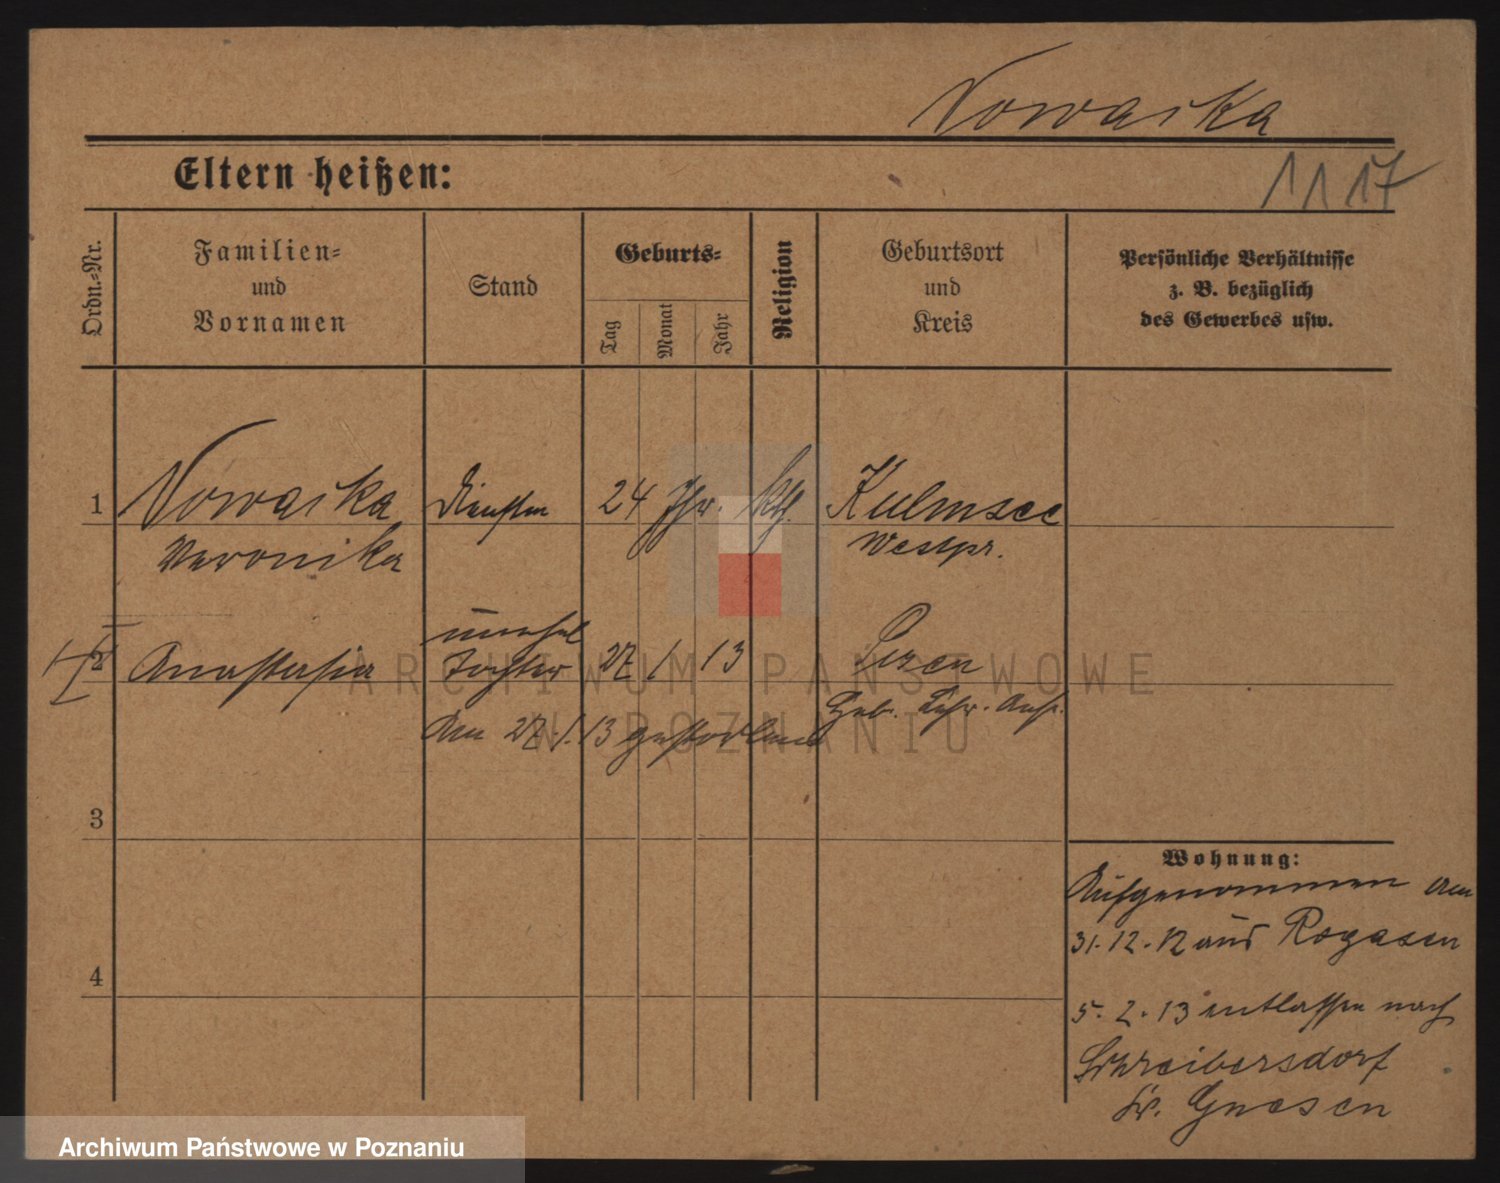 Nowaska
Eltern heißen:
1117
Ordn.-Nr.
Familien-
und
Vornamen
Stand
Geburts-
Tag
Monat
Jahr
Religion
Geburtsort
und
Kreis
Persönliche Verhältnisse
z. B. bezüglich
des Gewerbes usw.
1 Nowaska 24 Jhr. kth. Kulmsee
Veronika Westpr.
unehel
2 Anastasia Tochter 27 1 13
Am 27. 1. 13 gestorben Geb. Lehr. Anst.
3
4
Wohnung:
Aufgenommen am
31. 12. 12 aus Rogasen
5. 2. 13 entlassen nach
Schreibersdorf
Kr. Gnesen
ARCHIWUM PAŃSTWOWE
W POZNANIU
Archiwum Państwowe w Poznaniu